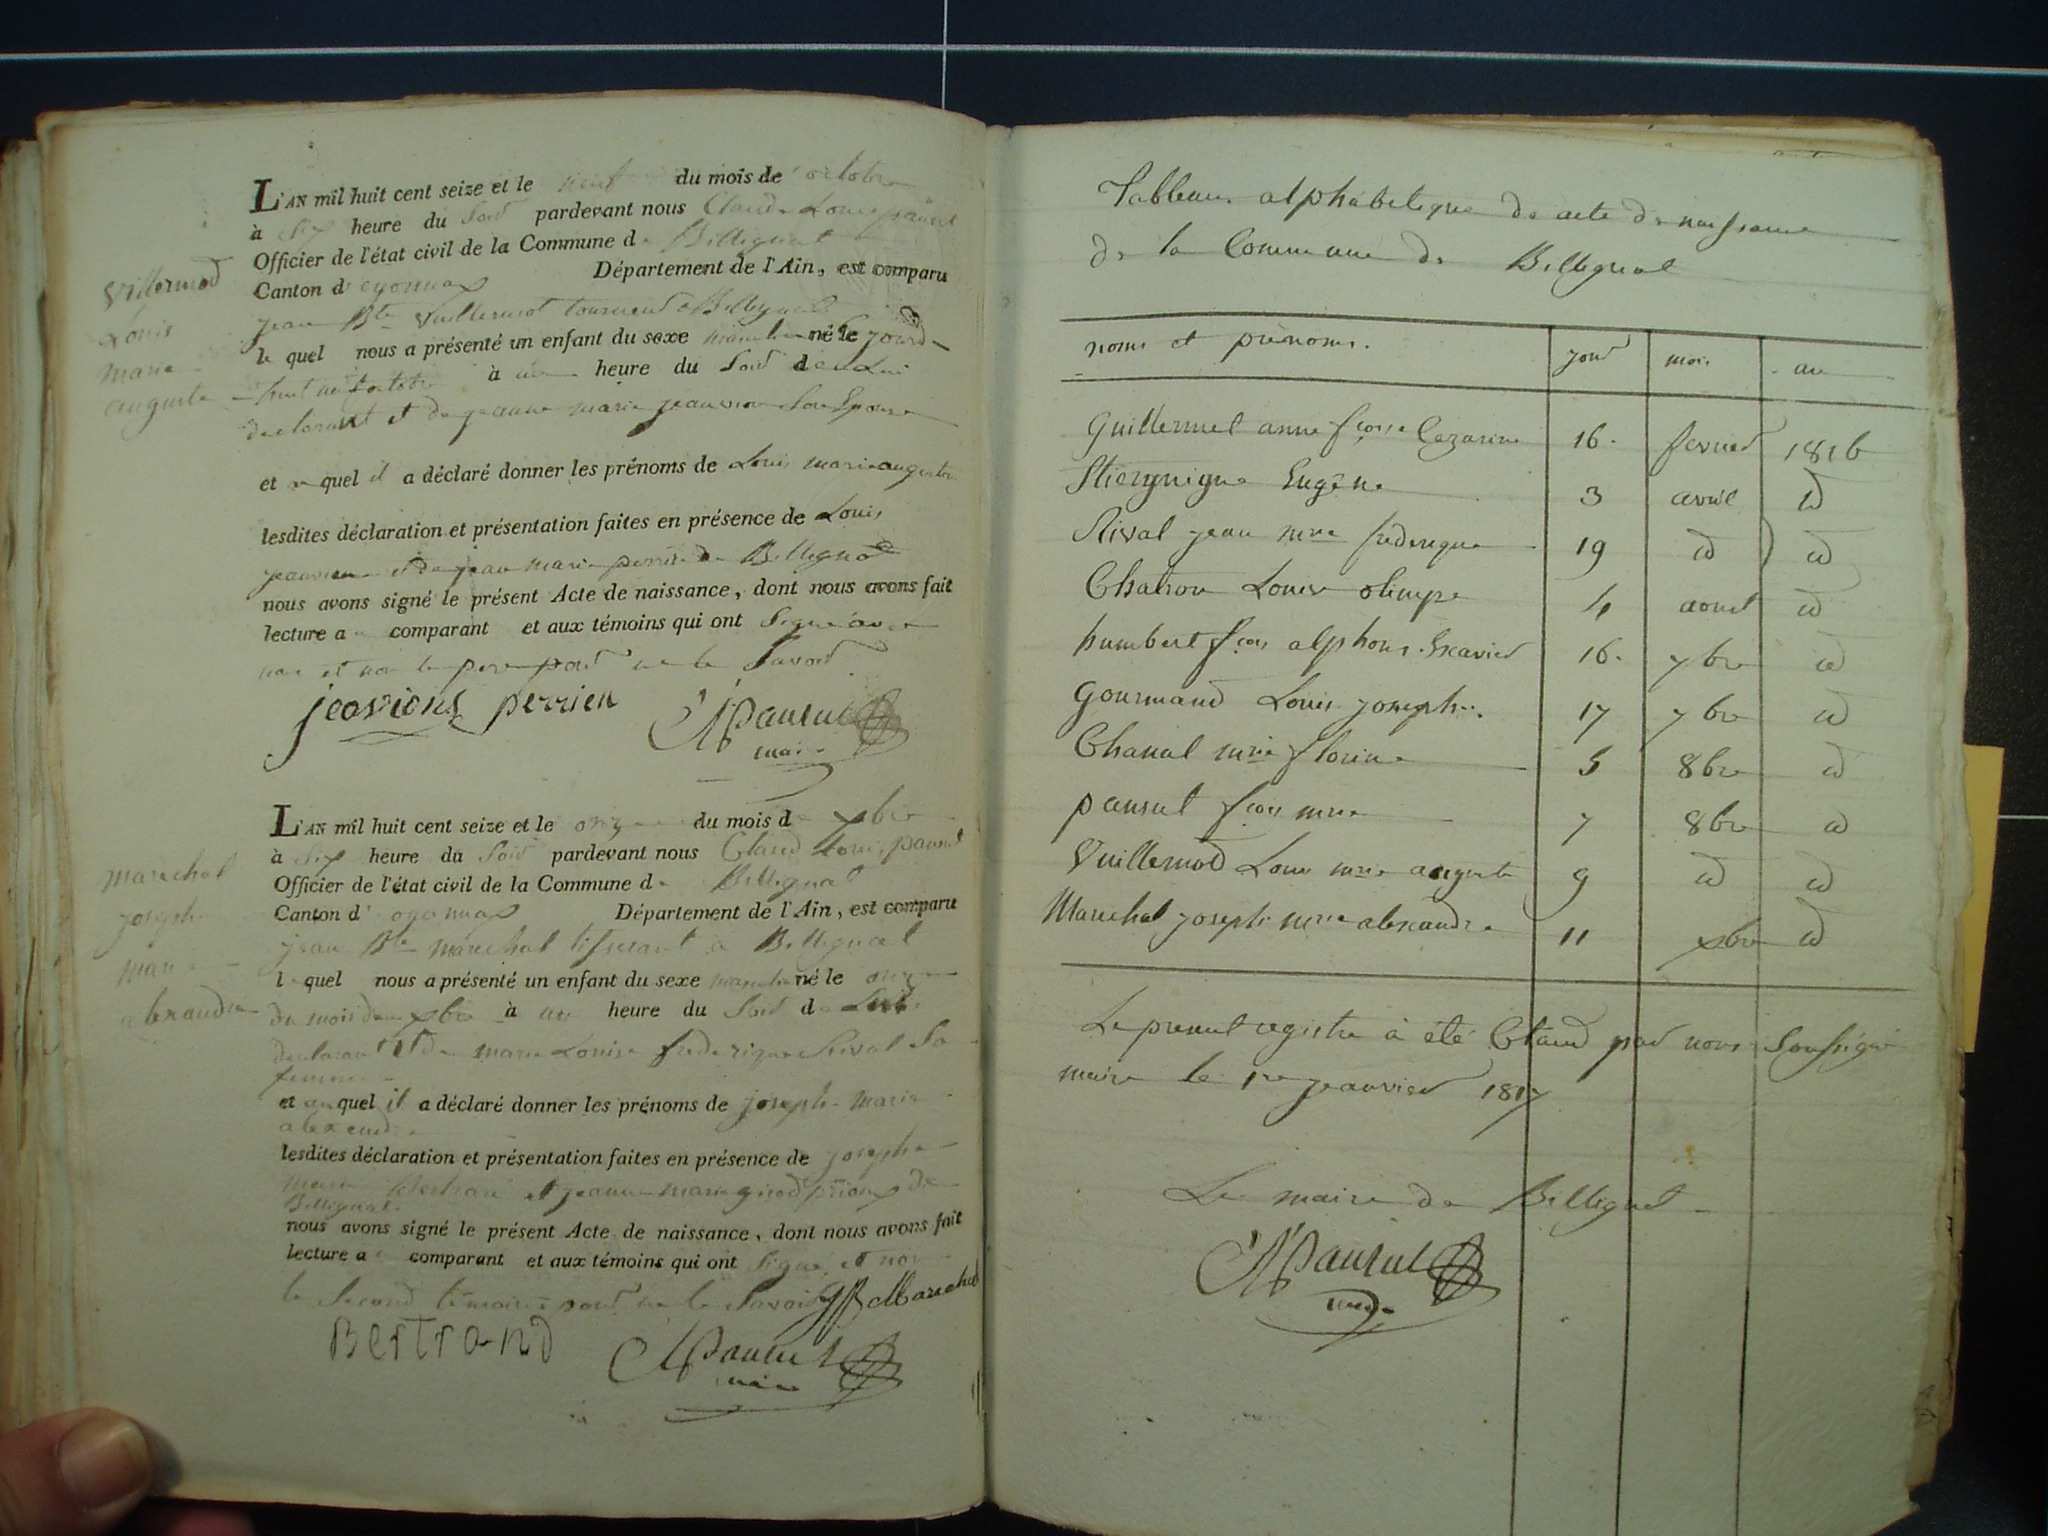 Villermod
Louis
marie
auguste
L'AN mil huit cent seize et le neuf du mois de octobre
à six heure du soir pardevant nous Claude Louis pansut
Officier de l'état civil de la Commune de Billignat
Canton d'oyonnax Département de l'Ain, est comparu
jean Bte Vuillermot tourneur à Billignat
le quel nous a présenté un enfant du sexe masculin né le jourd
huit neuf octobre à une heure du soir de lui
declarant et de jeanne marie jeanvion son Epouse
et quel il a déclaré donner les prénoms de Louis marie auguste
lesdites déclaration et présentation faites en présence de Louis
et de jean marie perrin de Billignat
nous avons signé le présent Acte de naissance, dont nous avons fait
lecture au comparant et aux témoins qui ont signé avec
nous et non le pere pour ne le savoir
jeavions perrien CLPansut
maire
marechal
joseph
marie
alexandre
L'AN mil huit cent seize et le onze du mois d xbre
à six heure du soir pardevant nous Claude Louis pansut
Officier de l'état civil de la Commune de Billignat
Canton d'oyonnax Département de l'Ain, est comparu
jean Bte marechal à Billignat
le quel nous a présenté un enfant du sexe masculin né le onze
du mois de xbre à une heure du soir de lui
declarant et de marie Louise frederique Rival sa
femme
et auquel il a déclaré donner les prénoms de joseph marie
alexandre
lesdites déclaration et présentation faites en présence de joseph
marie Bertrand et jeanne marie girod de
Billignat
nous avons signé le présent Acte de naissance, dont nous avons fait
lecture au comparant et aux témoins qui ont signé et non
le second témoins pour ne le savoir JB Marechal
Bertrand CLPansut
maire
Tableau alphabetique de acte de naissance
de la Commune de Billignat
noms et prénoms. jour mois an
Guillermet anne fçoise Cezarine 16. fevrier 1816
Eugêne 3 avril id
Rival jean mrie frederique 19 id id
Chatron Louise olimpe 4 aoust id
humbert fçois alphons. Exavier 16. 7bre id
Gourmand Louis joseph. 17 7bre id
Chanal mrie florine 5 8bre id
pansut fçois mrie 7 8bre id
Vuillermod Louis mrie auguste 9 id id
Marechal joseph mrie alexandre 11 xbre id
Le present registre à été Claud par nous soussigné
maire le 1er jeanvier 1817
Le maire de Billignat
CLPansut
maire